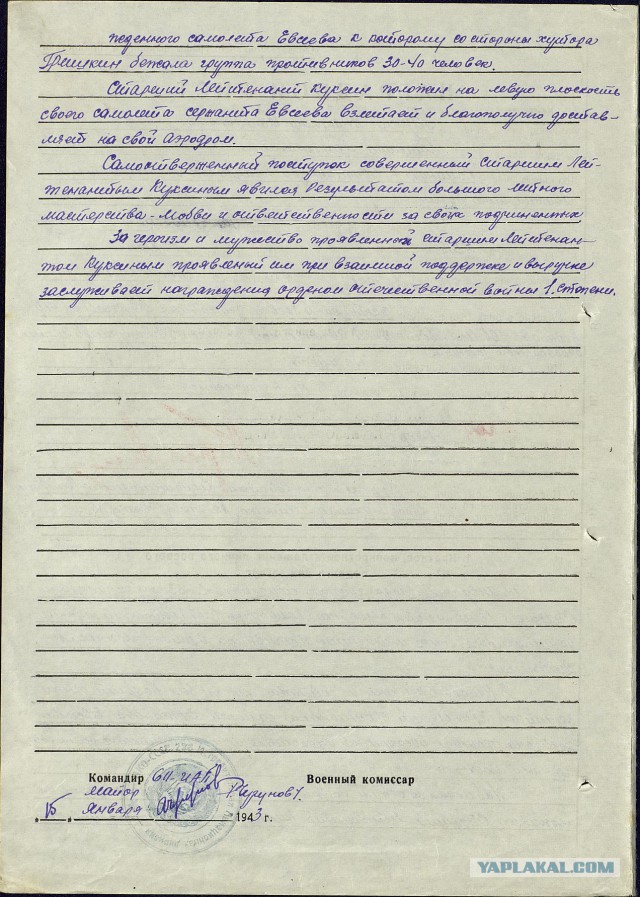 жденного самолета Евсеева к которому со стороны хутора
Гришкин бежала группа противников 30-40 человек.
Старший Лейтенант Куксин положил на левую плоскость
своего самолета сержанта Евсеева взлетает и благополучно достав-
ляет на свой аэродром.
Самоотверженный поступок совершенный Старшим Лей-
тенантом Куксиным явился результатом большого летного
мастерства - любви и ответственности за своих подчиненных
За героизм и мужество проявленное старшим Лейтенан-
том Куксиным проявленый им при взаимной поддержке и выручке
заслуживает награждения орденом отечественной войны 1. степени.
Командир 611-ИАП Военный комиссар
майор
15 января 1943 г.
YAPLAKAL.COM